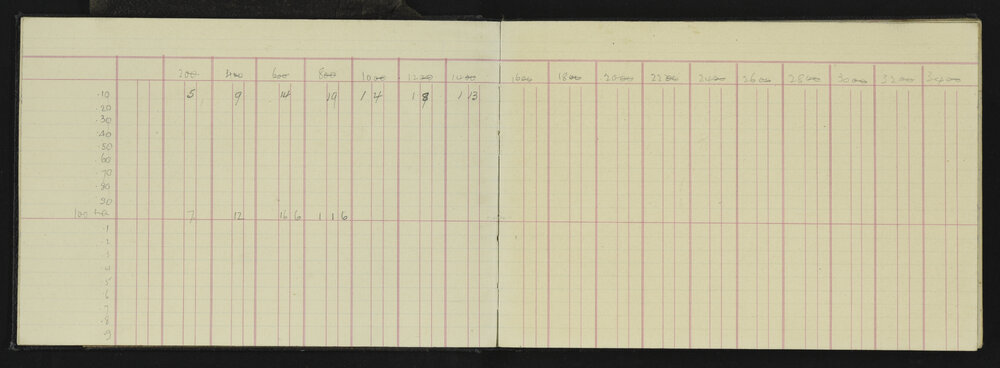 200 400 600 800 1000 1200 1400 1600 1800 2000 2200 2400 2600 2800 3000 3200 3400
.10 5 9 14 19 1 4 1 8 1 13
.20
30
40
.50
60
.70
.80
.90
100 7 12 16 6 1 1 6
.1
.2
.3
.4
.5
.6
.7
.8
.9